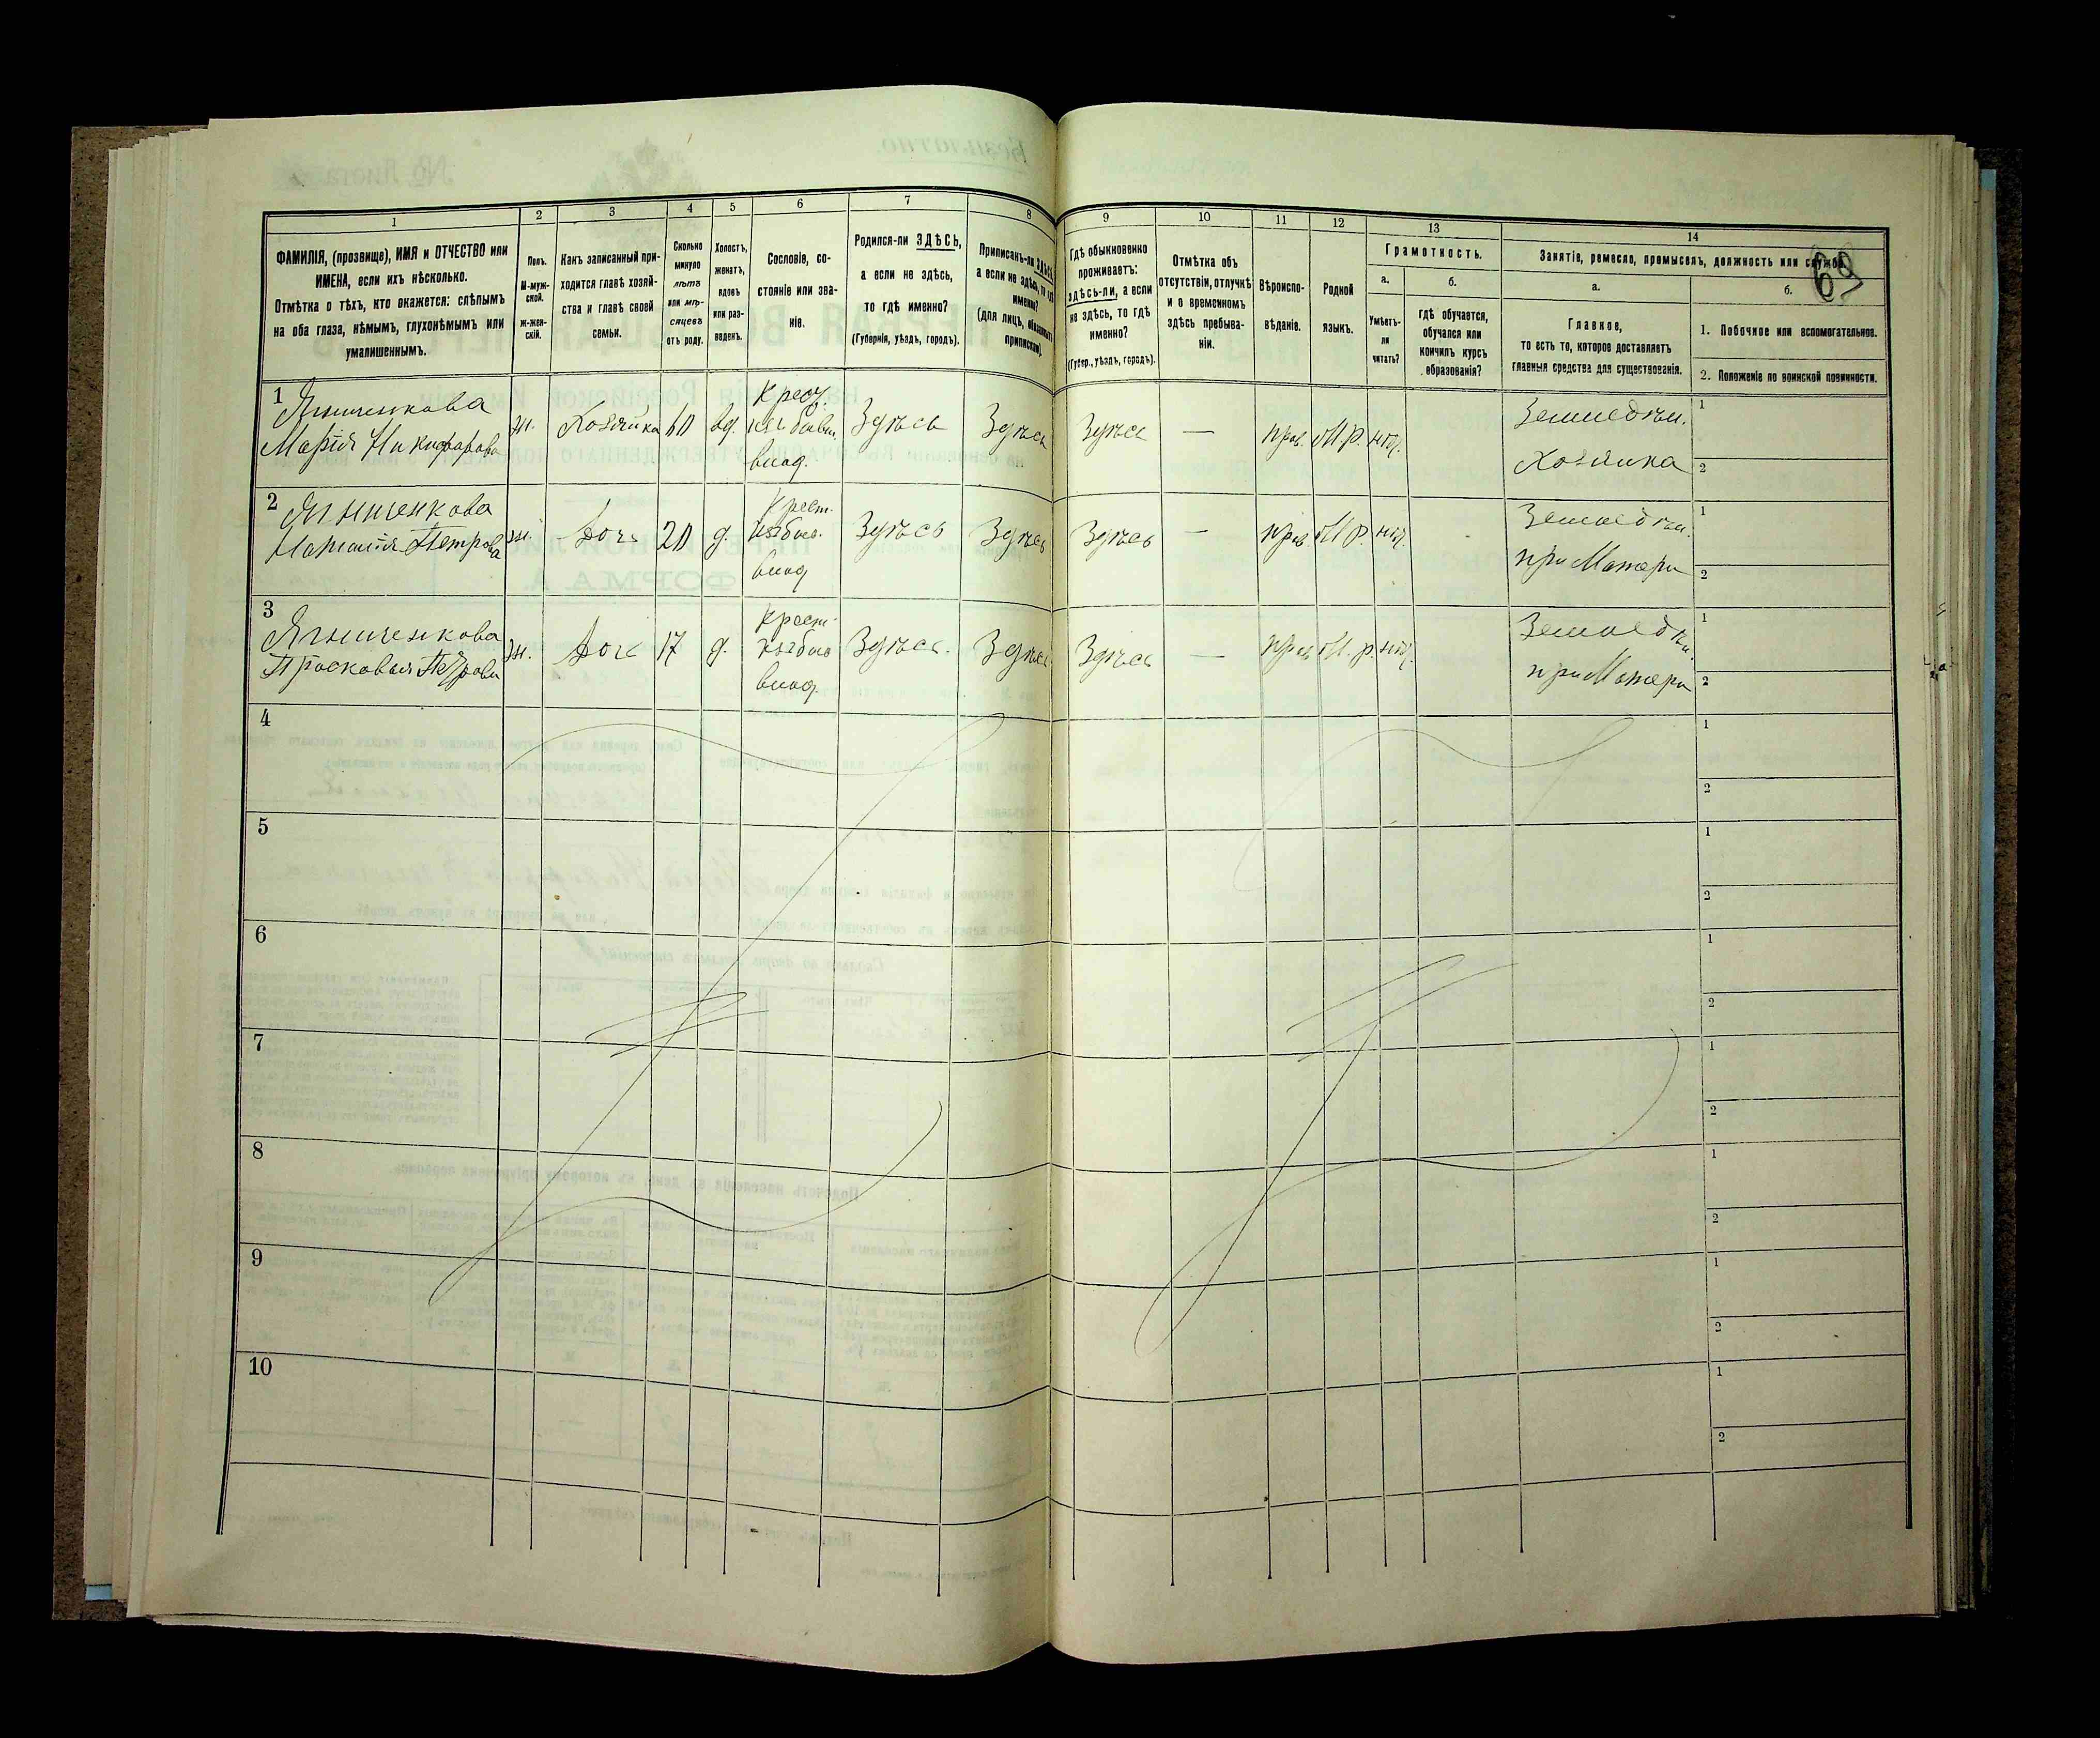 1
2
3
4
5
6
7
8
9
10
11
12
13
14
69
ФАМИЛІЯ, (прозвище), ИМЯ и ОТЧЕСТВО или
ИМЕНА, если ихъ нѣсколько.
Отмѣтка о тѣхъ, кто окажется: слѣпымъ
на оба глаза, нѣмымъ, глухонѣмымъ или
умалишеннымъ.
Полъ.
М-муж-
ской.
ж-жен-
скій.
Какъ записанный при-
ходится главѣ хозяй-
ства и главѣ своей
семьи.
Сколько
минуло
лѣтъ
или мѣ-
сяцевъ
отъ роду.
Холостъ,
женатъ,
вдовъ
или раз-
веденъ.
Сословіе, со-
стояніе или зва-
ніе.
Родился-ли ЗДѢСЬ,
а если не здѣсь,
то гдѣ именно?
(Губернія, уѣздъ, городъ).
Приписанъ-ли ЗДѢСЬ,
а если не здѣсь, то гдѣ
именно?
(для лицъ, обязанныхъ
припискою).
Гдѣ обыкновенно
проживаетъ:
здѣсь-ли, а если
не здѣсь, то гдѣ
именно?
(Губер., уѣздъ, городъ).
Отмѣтка объ
отсутствіи, отлучкѣ
и о временномъ
здѣсь пребыва-
ніи.
Вѣроиспо-
вѣданіе.
Родной
языкъ.
Грамотность.
а.
Умѣетъ-
ли
читать?
б.
гдѣ обучается,
обучался или
кончилъ курсъ
образованія?
Занятіе, ремесло, промыселъ, должность или служба.
а.
Главное,
то есть то, которое доставляетъ
главныя средства для существованія.
б.
1. Побочное или вспомогательное.
2. Положеніе по воинской повинности.
1
Марія Никифорова
ж.
Хозяйка
60
вд.
Здѣсь
Здѣсь
Здѣсь
—
прав.
М.р.
нѣт.
Земледѣл.
Хозяйка
1
2
2
Петрова
ж.
Дочь
20
д.
Крест.
Здѣсь
Здѣсь
Здѣсь
—
прав.
М.р.
нѣт.
Земледѣл.
при Матери
1
2
3
Просковья Петрова
ж.
Дочь
17
д.
Крест.
Здѣсь.
Здѣсь
Здѣсь
—
прав.
М.р.
нѣт.
Земледѣл.
при Матери
1
2
4
1
2
5
1
2
6
1
2
7
1
2
8
1
2
9
1
2
10
1
2